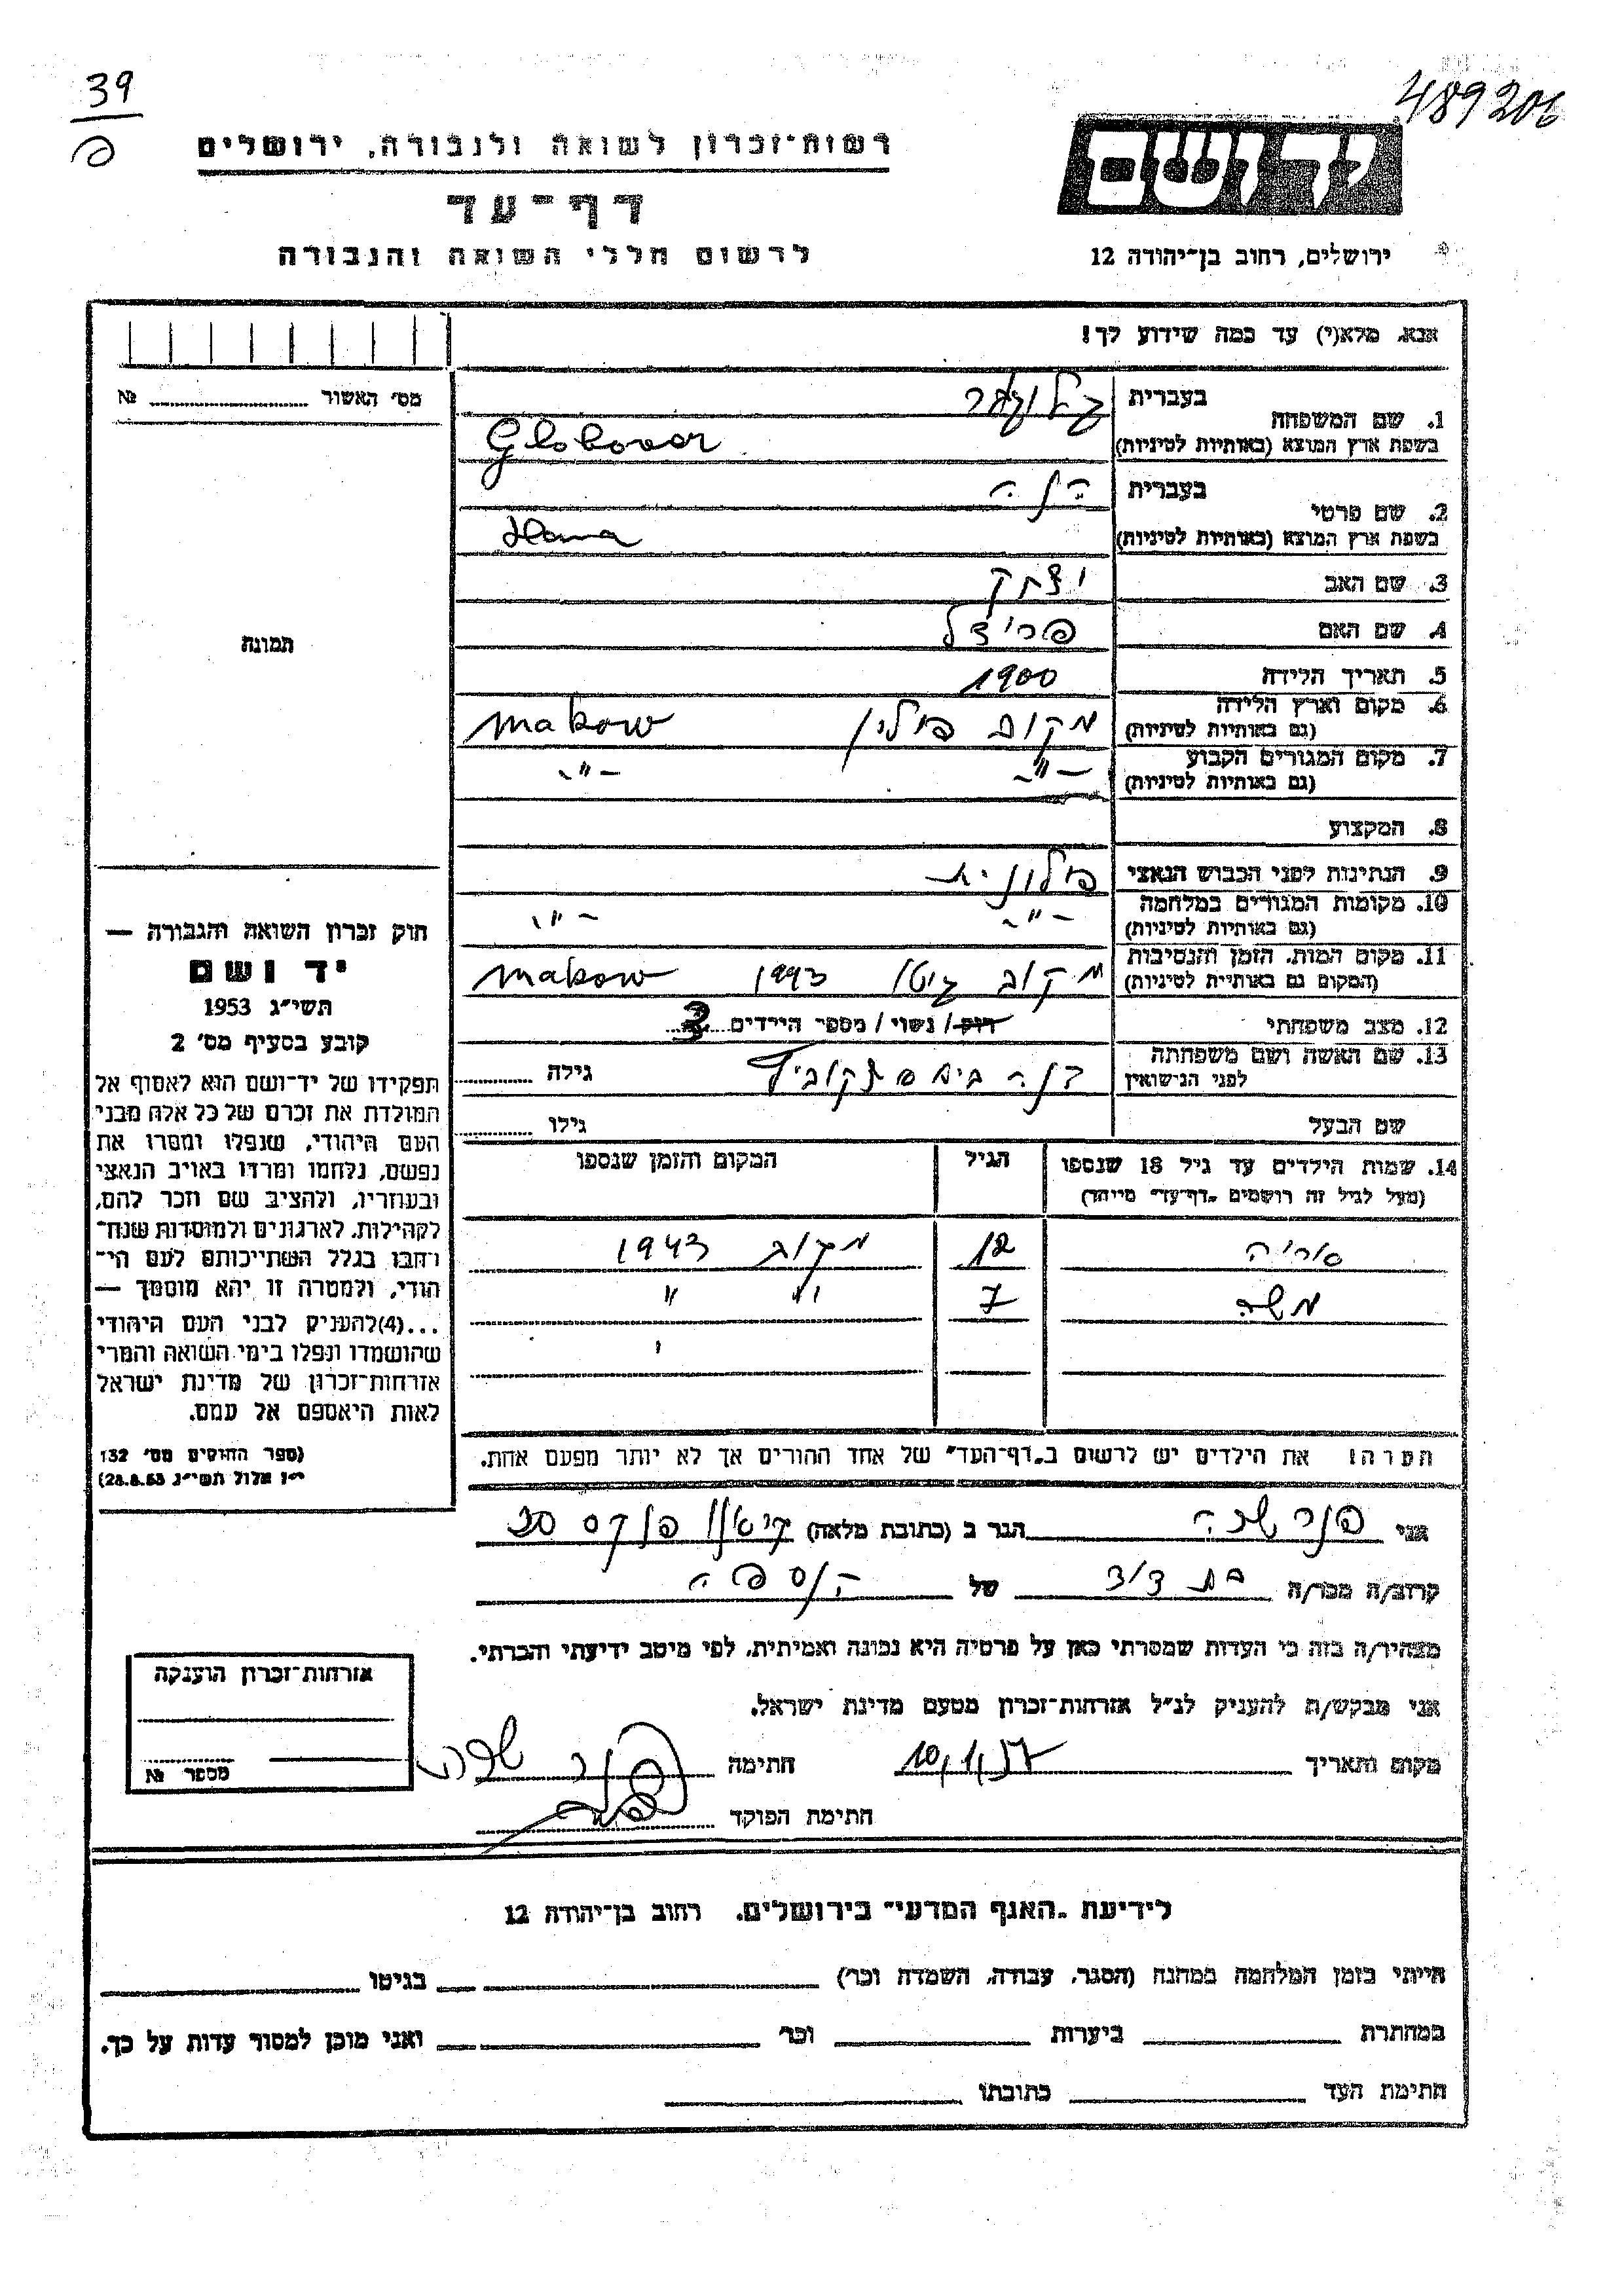 39
489206
רשות-זכרון לשואה ולגבורה, ירושלים
יד ושם
דף-עד
לרשום חללי השואה והגבורה
ירושלים, רחוב בן-יהודה 12
אנא, מלא(י) עד כמה שידוע לך!
מס׳ האשור № 
1. שם המשפחה בעברית
בשפת ארץ המוצא (באותיות לטיניות) Globover
2. שם פרטי בעברית חנה
בשפת ארץ המוצא (באותיות לטיניות) Hana
3. שם האב יצחק
4. שם האם פריצל
5. תאריך הלידה 1900
6. מקום וארץ הלידה (גם באותיות לטיניות) מקוב פולין Makow
7. מקום המגורים הקבוע (גם באותיות לטיניות) -"- -"-
8. המקצוע
9. הנתינות לפני הכבוש הנאצי פולונית
10. מקומות המגורים במלחמה (גם באותיות לטיניות) -"- -"-
11. מקום המות, הזמן והנסיבות (המקום גם באותיות לטיניות) מקוב גיטו 1943 Makow
12. מצב משפחתי רווק/ נשוי/ מספר הילדים 3
13. שם האשה ושם משפחתה לפני הנישואין גילה
שם הבעל גילו
14. שמות הילדים עד גיל 18 שנספו הגיל המקום והזמן שנספו
(מעל לגיל זה רושמים „דף-עד" מיוחד)
שריה 12 מקוב 1943
משה 7 " "
תמונה
חוק זכרון השואה והגבורה —
יד ושם
תשי״ג 1953
קובע בסעיף מס׳ 2
תפקידו של יד-ושם הוא לאסוף אל
המולדת את זכרם של כל אלה מבני
העם היהודי, שנפלו ומסרו את
נפשם, נלחמו ומרדו באויב הנאצי
ובעוזריו, ולהציב שם וזכר להם,
לקהילות, לארגונים ולמוסדות שנח-
רבו בגלל השתייכותם לעם הי-
הודי, ולמטרה זו יהא מוסמך —
...(4)להעניק לבני העם היהודי
שהושמדו ונפלו בימי השואה והמרי
אזרחות-זכרון של מדינת ישראל
לאות היאספם אל עמם.
(ספר החוקים מס׳ 132
י״ז אלול תשי״ג 28.8.53)
הערה! את הילדים יש לרשום ב„דף-העד" של אחד ההורים אך לא יותר מפעם אחת.
אני הגר ב (כתובת מלאה)
קרוב/ה מכר/ה בת דוד של הנספה
מצהיר/ה בזה כי העדות שמסרתי כאן על פרטיה היא נכונה ואמיתית, לפי מיטב ידיעתי והכרתי.
אני מבקש/ת להעניק לנ״ל אזרחות-זכרון מטעם מדינת ישראל.
מקום ותאריך 10/1/57 חתימה
חתימת הפוקד
אזרחות-זכרון הוענקה
מספר №
לידיעת „האגף המדעי" בירושלים, רחוב בן-יהודה 12
הייתי בזמן המלחמה במחנה (הסגר, עבודה, השמדה וכו׳) בגיטו
במחתרת ביערות וכו׳ ואני מוכן למסור עדות על כך.
חתימת העד כתובתו